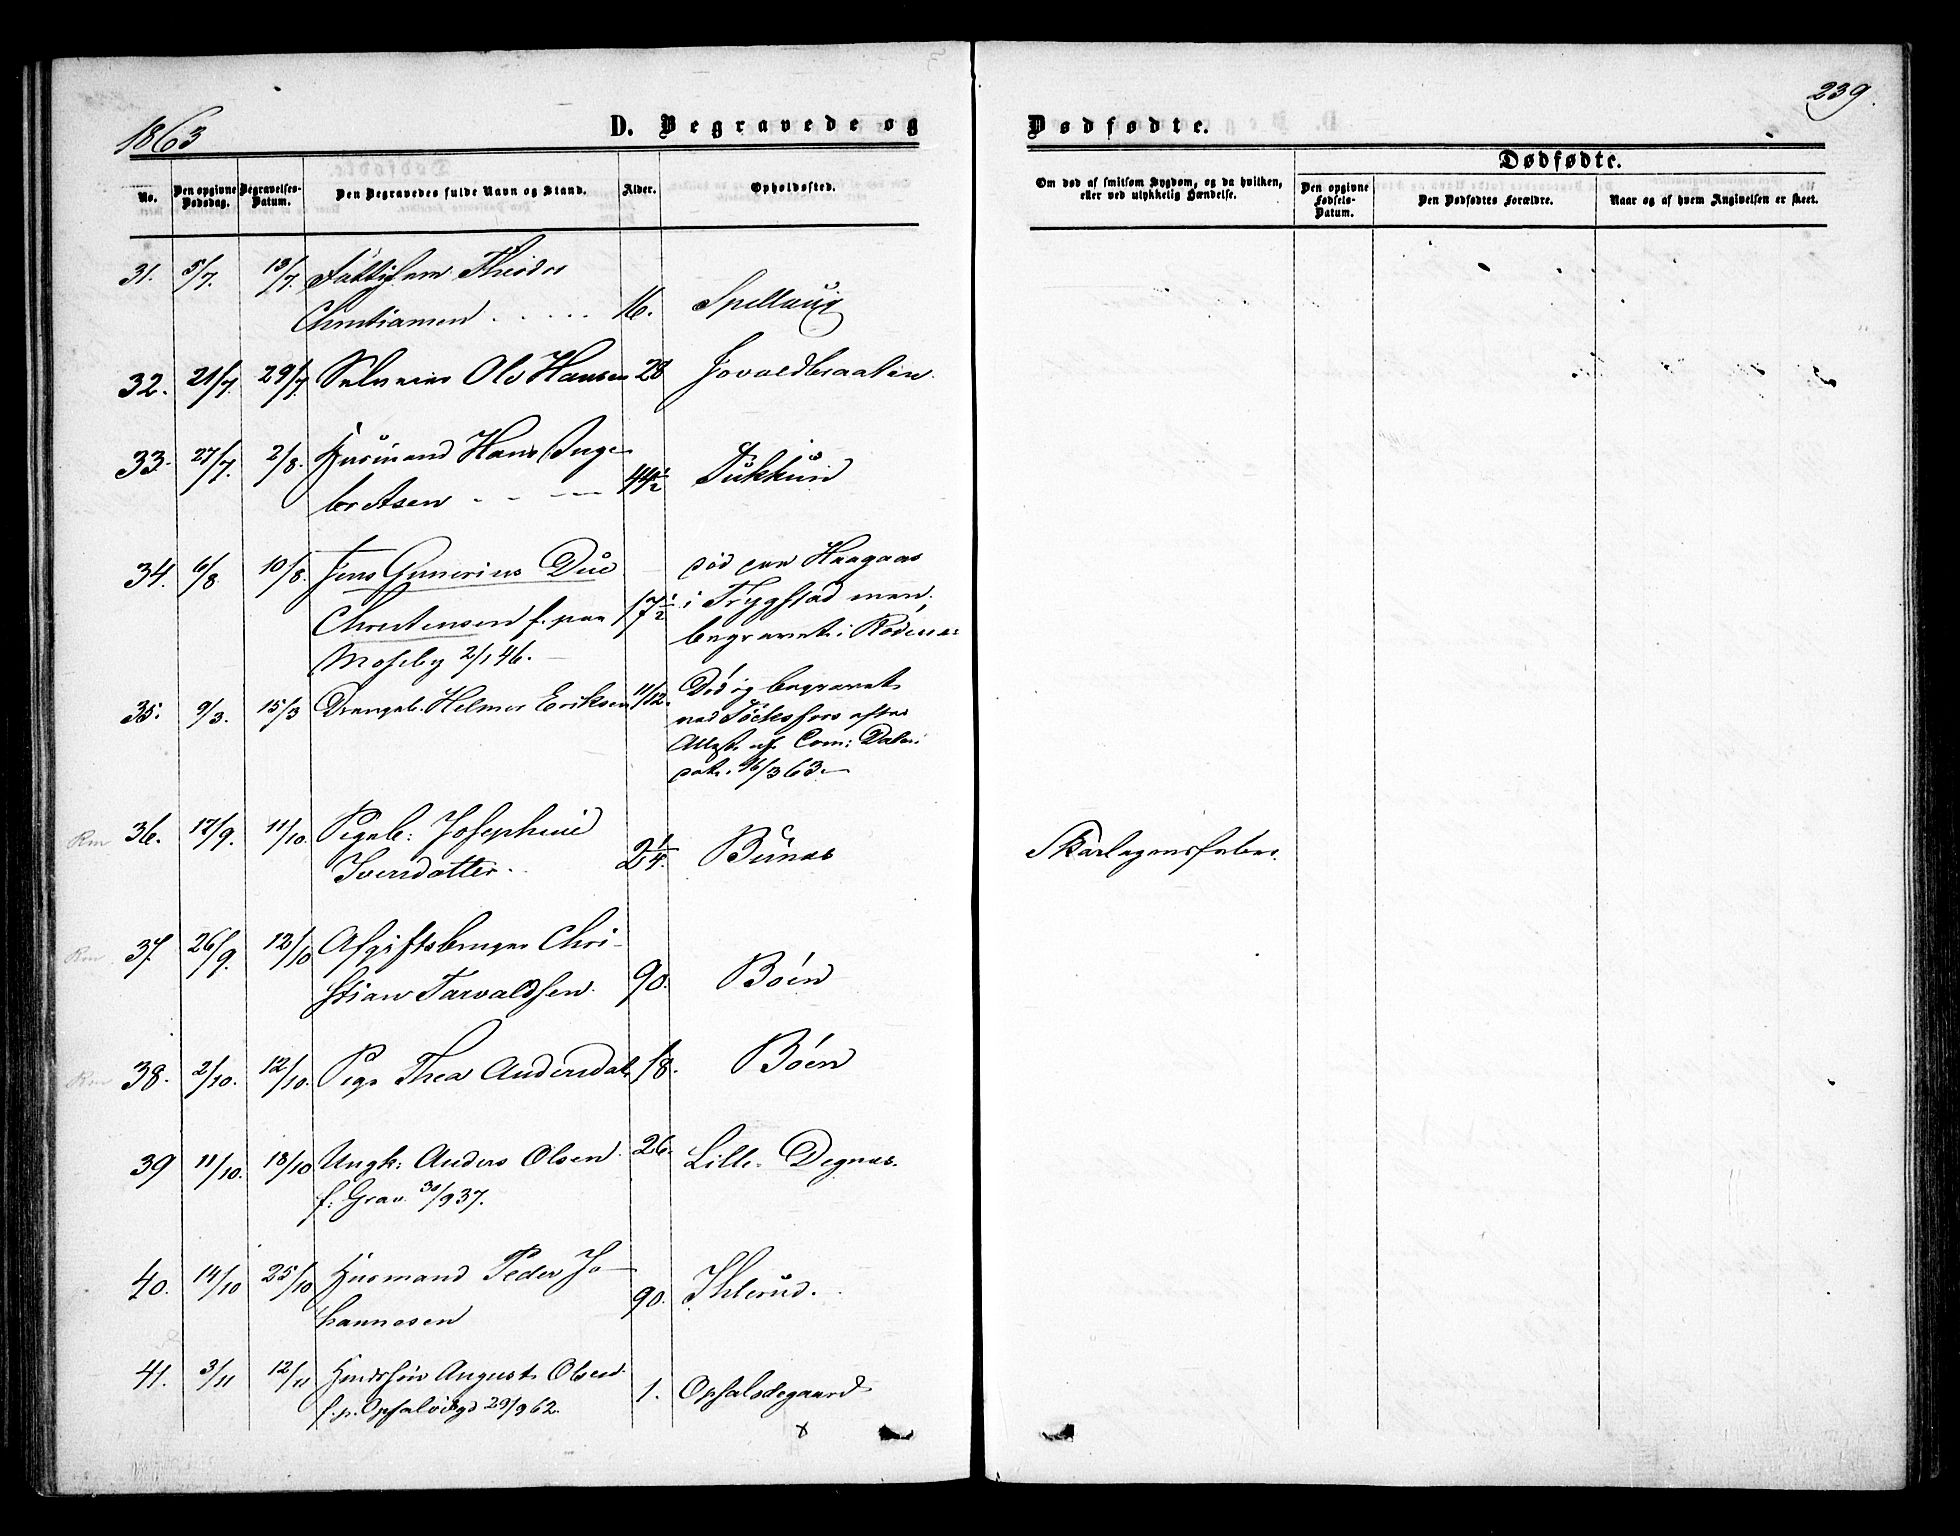 239.
1863
D. Begravede og
Dødfødte.
Dødfødte.
No.
Den opgivne Dødsdag.
Begravelses-Datum.
Den Begravedes fulde Navn og Stand.
Alder.
Opholdssted.
Om død af smitsom Sygdom, og da hvilken,
eller ved ulykkelig Hændelse.
Den opgivne Fødsels-Datum.
Den Dødfødtes Forældre.
Naar og af hvem Angivelsen er skeet.
31. 5/7. 13/7. Fattiglem Theodor
Christiansen . . . . . 16. Spellaug
32. 21/7. 29/7. Selveier Ole Hansen 28
33. 27/7. 2/8. Husmand Hans Inge-
bretsen - - - - 44½
34. 6/8. 10/8. Jens Gunerius Due død paa Haagaas
Christensen f. paa 17½ i Trygstad men
begravet i Rødenes
Moseby 2/1 46.
35. 9/3. 15/3 Drengeb. Helmer Eriksen 11/12. Død og begravet
ved Töcksfors efter
Attest af Com: Dalin
dat. 16/3 63.
Rm 36. 17/9. 11/10. Pigeb: Josephine
Iversdatter. 2¼. Bunæs Skarlagensfeber.
Rm 37. 26/9. 12/10 Afgiftsbruger Chri-
stian Tarvaldsen. 90. Böen
Rm 38. 2/10. 12/10. Pige Thea Andersdatr 18. Böen
39 11/10. 18/10 Ungk: Anders Olsen 26. Lille Degnæs.
f: Grav 30/9 37.
40. 14/10 25/10 Husmand Peder Jo-
hannesen 90. Ihlerud.
41. 3/11 12/11 August Olsen
f. p. 29/9 62. 1. Opsalsdegaard
x